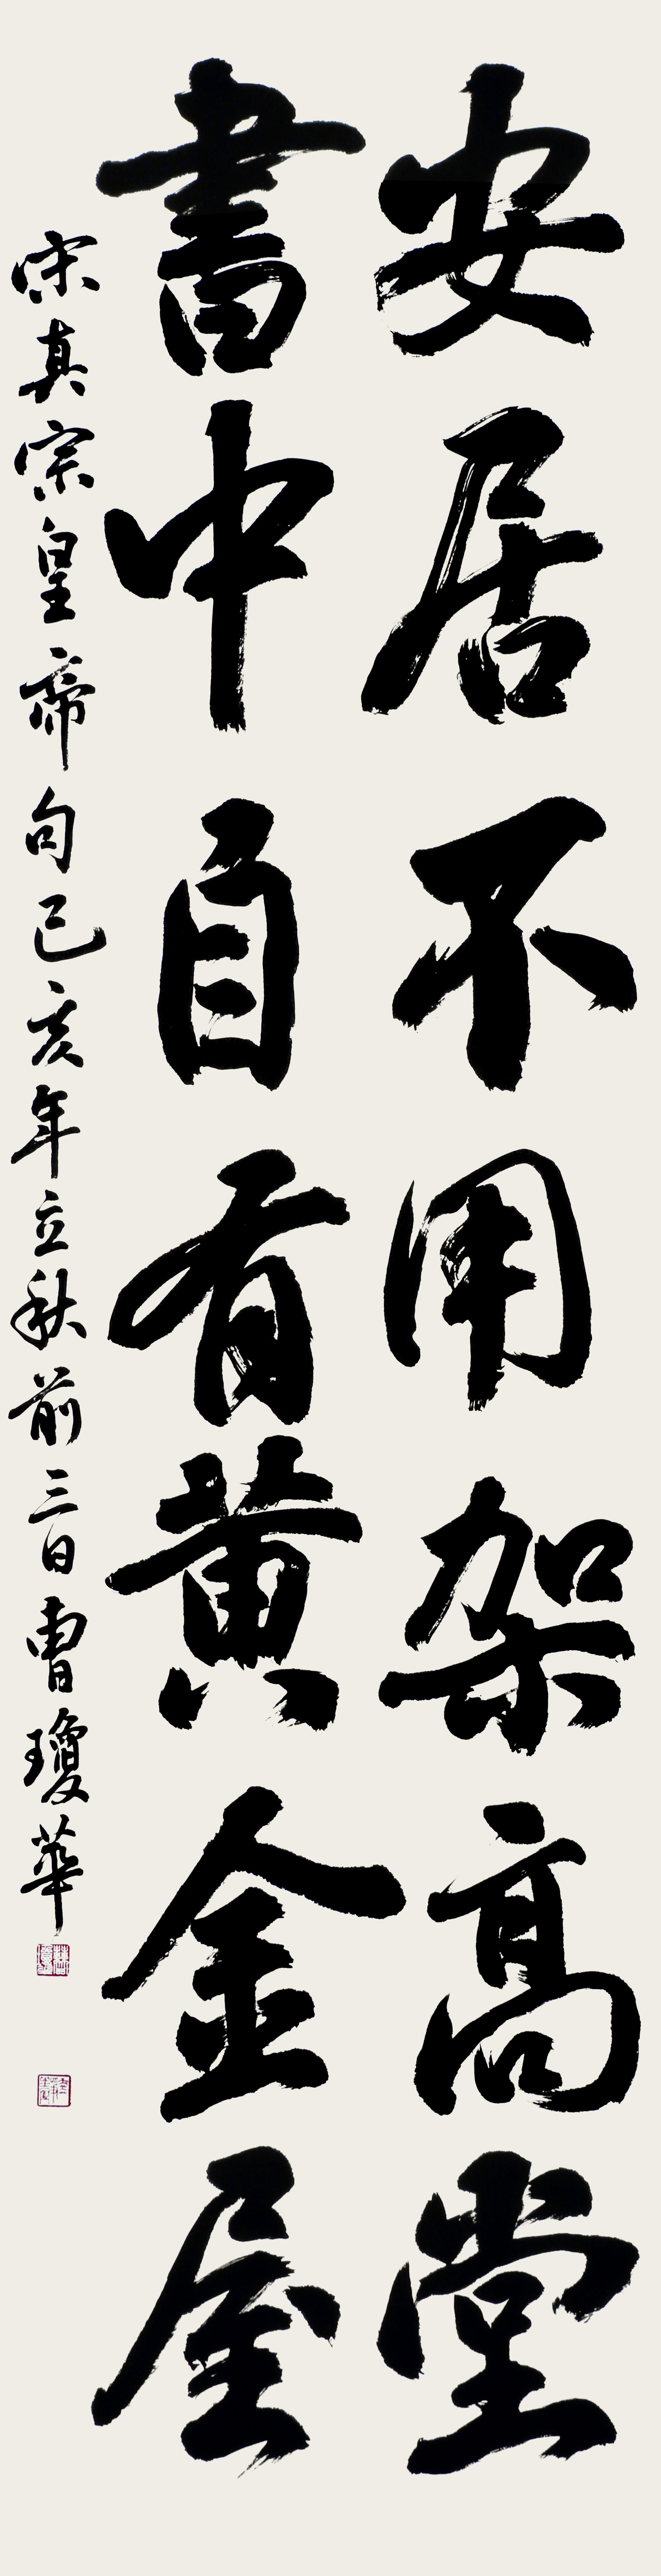 安居不用架高堂
書中自有黃金屋
宋真宗皇帝句己亥年立秋前三日曹瓊華